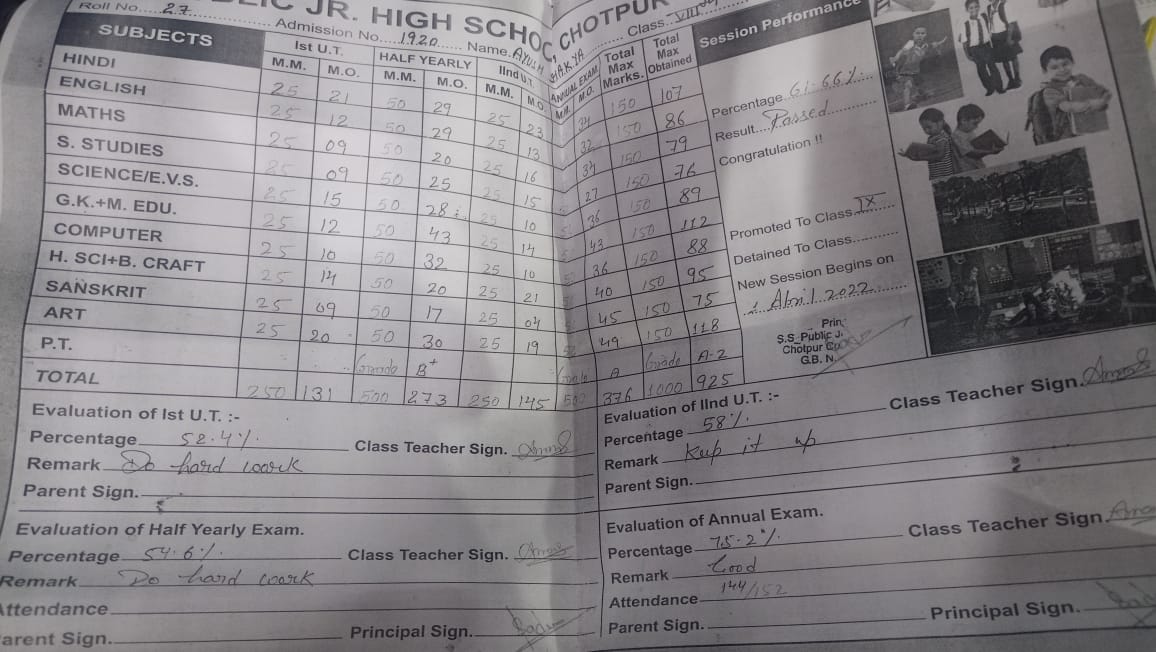 Roll No. 27
JR. HIGH SCHOOL, CHOTPUR
Admission No. 1920 Name. AYUSH SHAKYA Class. VIII
SUBJECTS Ist U.T. HALF YEARLY IInd U.T. ANNUAL EXAM. Total Max Marks. Total Max Obtained
M.M. M.O. M.M. M.O. M.M. M.O. M.M. M.O.
HINDI 25 21 50 29 25 23 34 150 107
ENGLISH 25 12 50 29 25 13 32 150 86
MATHS 25 09 50 20 25 16 34 150 79
S. STUDIES 25 09 50 25 25 15 27 150 76
SCIENCE/E.V.S. 25 15 50 28 25 10 36 150 89
G.K.+M. EDU. 25 12 50 43 25 14 43 150 112
COMPUTER 25 10 50 32 25 10 36 150 88
H. SCI+B. CRAFT 25 14 50 20 25 21 40 150 95
SANSKRIT 25 09 50 17 25 04 45 150 75
ART 25 20 50 30 25 19 50 49 150 118
P.T. Grade B+ Grade A Grade A-2
TOTAL 250 131 500 273 250 145 500 376 1000 925
Session Performance
Percentage 61.66%
Result. Passed
Congratulation !!
Promoted To Class. IX
Detained To Class.
New Session Begins on
April 2022
Prin.
S.S. Public J.
Chotpur
G.B. N.
Evaluation of Ist U.T. :-
Percentage 52.4% Class Teacher Sign.
Remark Do hard woark
Parent Sign.
Evaluation of Half Yearly Exam.
Percentage 54.6% Class Teacher Sign.
Remark Do hard woark
Attendance
Parent Sign. Principal Sign.
Evaluation of IInd U.T. :-
Percentage 58% Class Teacher Sign.
Remark Keep it up
Parent Sign.
Evaluation of Annual Exam.
Percentage 75.2% Class Teacher Sign.
Remark Good
Attendance 144/152
Parent Sign. Principal Sign.